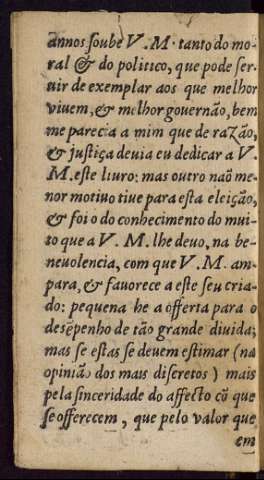 annos soube V. M. tanto do mo-
ral & do politico, que pode ser-
uir de exemplar aos que melhor
viuem, & melhor gouernão, bem
me parecia a mim que de raZão,
& justiça deuia eu dedicar a V.
M. este liuro: mas outro naõ me-
nor motiuo tiue para esta eleição,
& foi o do conhecimento do mui-
to que a V. M. lhe deuo, na be-
neuolencia, com que V. M. am-
para, & fauorece a este seu cria-
do: pequena he a offerta para o
desẽpenho de tão grande diuida;
mas se estas se deuem estimar (na
opinião dos mais discretos) mais
pela sinceridade do affecto cõ que
se offerecem, que pelo valor que
em